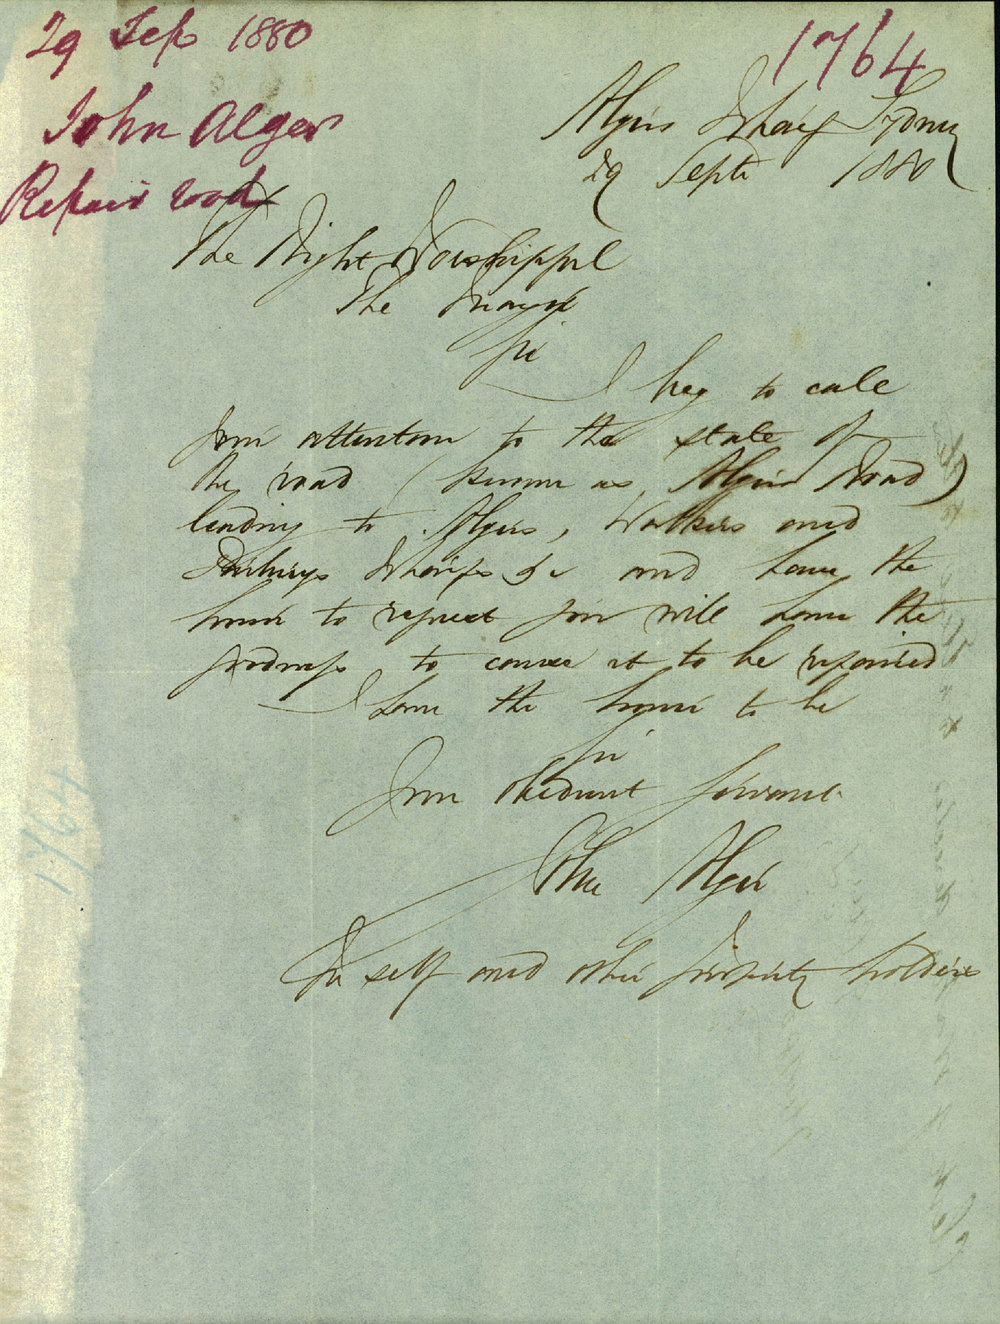 29 Sep 1880
1764
John Alger
Repair road
Algers Wharf Sydney
29 Septr 1880
The Right Worshipful
The Mayor
Sir
I beg to call
your attention to the state of
the road (known as Algers Road)
leading to Algers, Walkers and
Wharfs &c and have the
honor to request you will have the
goodness to cause it to be repaired
I have the honor to be
Sir
Your Obedient Servant
John Alger
For self and other property holders
1764